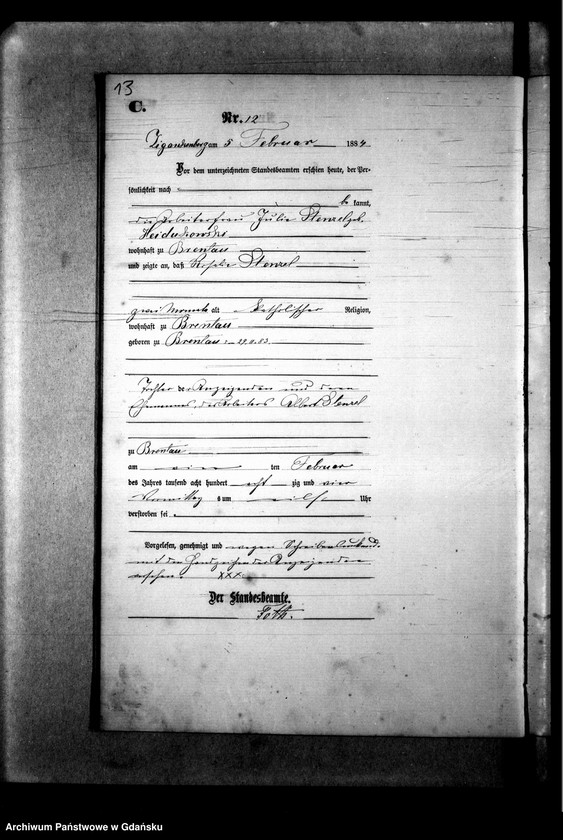 13
C.
Nr. 12
Zigankenberg am 5 Februar 1884
Vor dem unterzeichneten Standesbeamten erschien heute, der Per-
sönlichkeit nach
be kannt,
die Arbeiterfrau Julie Stenzel geb.
Heidukowski
wohnhaft zu Brentau
und zeigte an, daß Rosalie Stenzel
zwei Monate alt katholischer Religion,
wohnhaft zu Brentau
geboren zu Brentau
Tochter der Anzeigenden und deren
Ehemannes, des Arbeiters Albert Stenzel
zu Brentau
am vier ten Februar
des Jahres tausend acht hundert acht zig und vier
Vormittag s um eilf Uhr
verstorben sei
Vorgelesen, genehmigt und wegen Schreibensunkund.
mit den Handzeichen der Anzeigenden
versehen. XXX
Der Standesbeamte.
Archiwum Państwowe w Gdańsku